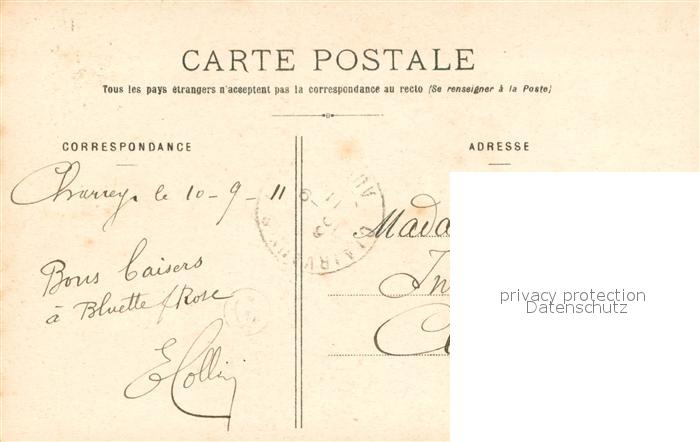 CARTE POSTALE
Tous les pays étrangers n'acceptent pas la correspondance au recto (Se renseigner à la Poste)
CORRESPONDANCE
ADRESSE
Charrey le 10-9-11
Bons baisers
à Bluette & Rose
E Collin
Mada
In
privacy protection
Datenschutz